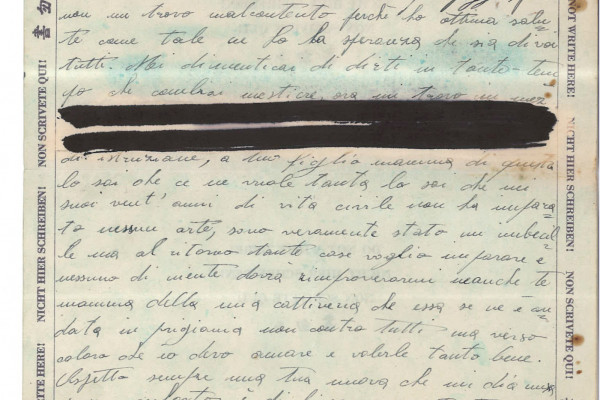 non mi trovo malcontento perchè ho ottima salu=
te come tale in la speranza che sia di voi
tutti. Mi dimenticai di dirti in tanto tem=
po che cambiai mestiere, ora mi trovo in mez
di istruzione, a tuo figlio mamma di questa
lo sai che ce ne vuole tanta lo sai che nei
suoi vent'anni di vita civile non ha impara=
to nessun arte, sono veramente stato un imbecil
le ma al ritorno tante cose voglio imparare e
nessuno di niente dovrà rimproverarmi neanche te
mamma della mia cattiveria che essa se ne è an=
data in prigionia non contro tutti ma verso
coloro che io devo amare e volerle tanto bene.
Aspetto sempre una tua nuova che mi dia
書勿
NON SCRIVETE QUI!
NICHT HIER SCHREIBEN!
WRITE HERE!
NOT WRITE HERE!
NICHT HIER SCHREIBEN!
NON SCRIVETE QUI!